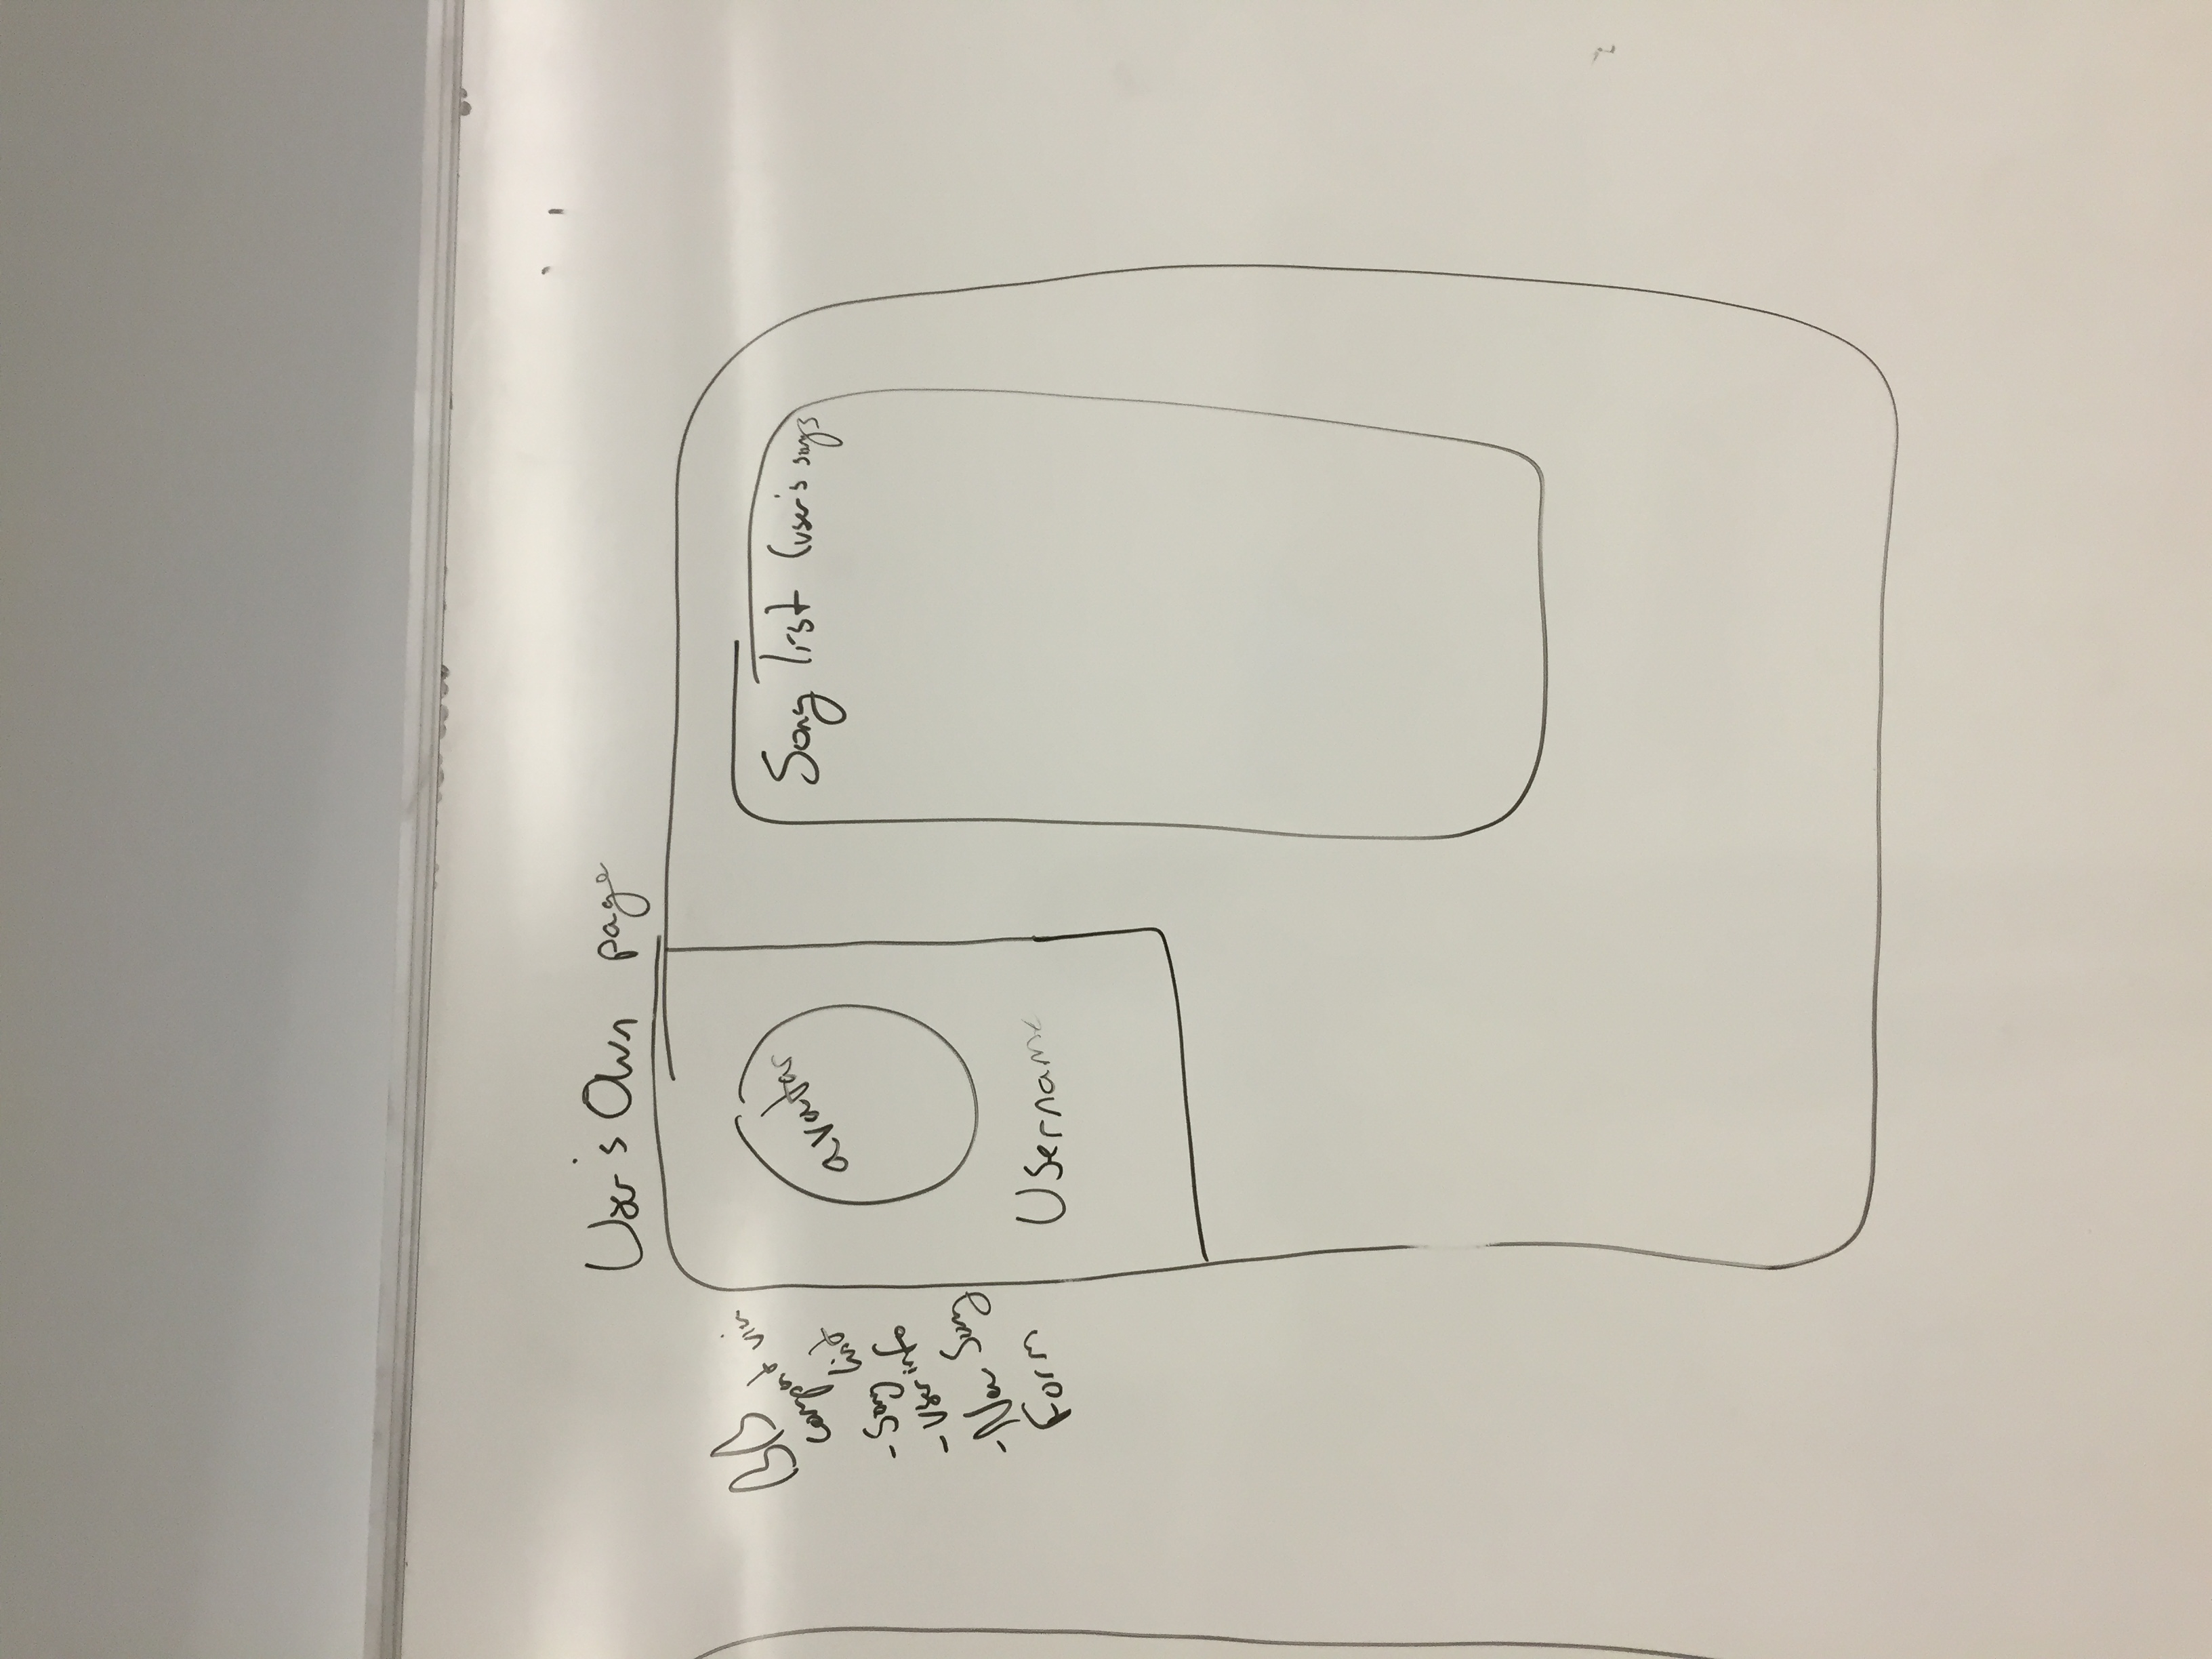 User's Own page
BB
compost view
- Song list
- User info
- New Song
Form
avatar
Username
Song list (user's songs